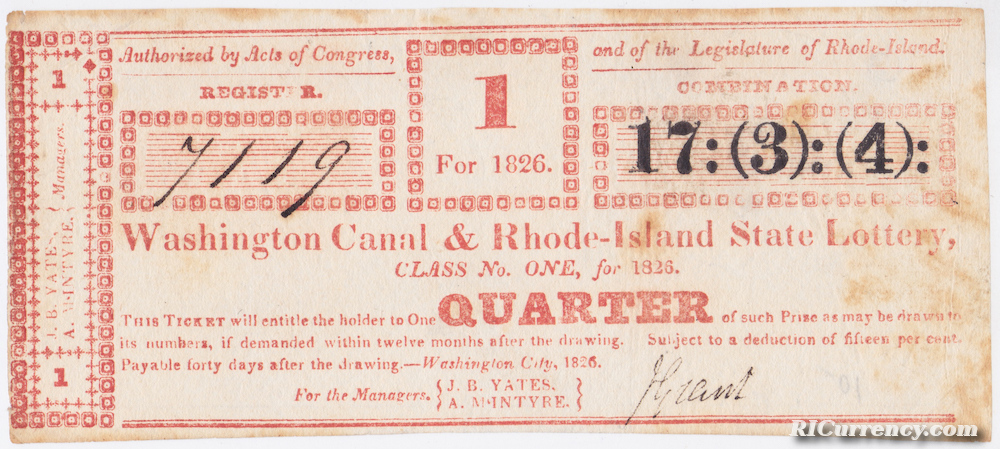 1
J. B. YATES,
A. M'INTYRE.
Managers.
1
Authorized by Acts of Congress,
and of the Legislature of Rhode-Island.
REGISTER.
7119
1
For 1826.
COMBINATION.
17:(3):(4):
Washington Canal & Rhode-Island State Lottery,
CLASS No. ONE, for 1826.
THIS TICKET will entitle the holder to One QUARTER of such Prize as may be drawn to
its numbers, if demanded within twelve months after the drawing. Subject to a deduction of fifteen per cent.
Payable forty days after the drawing.—Washington City, 1826.
For the Managers. { J. B. YATES.
A. M'INTYRE. }
JGrant
RICurrency.com